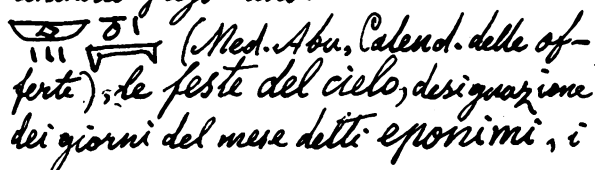 (Med. Abu, Calend. delle of-
ferte), le feste del cielo, designazione
dei giorni del mese detti eponimi, i